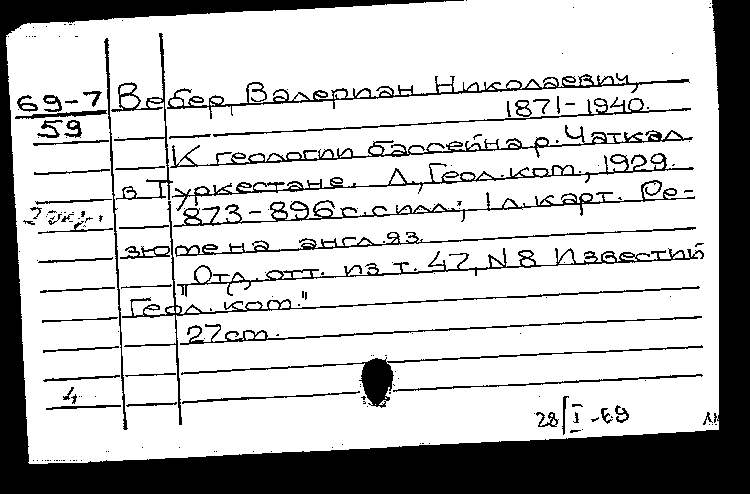 69-7
59
Вебер, Валериан Николаевич,
1871-1940.
К геологии бассейна р. Чаткал
в Туркестане. Л., Геол. ком., 1929.
2 экз.
873-896 с. с илл.; 1 л. карт. Ре-
зюме на англ. яз.
"Отд. отт. из т. 47, N 8 Известий
Геол. ком."
27 см.
4
28/I-69